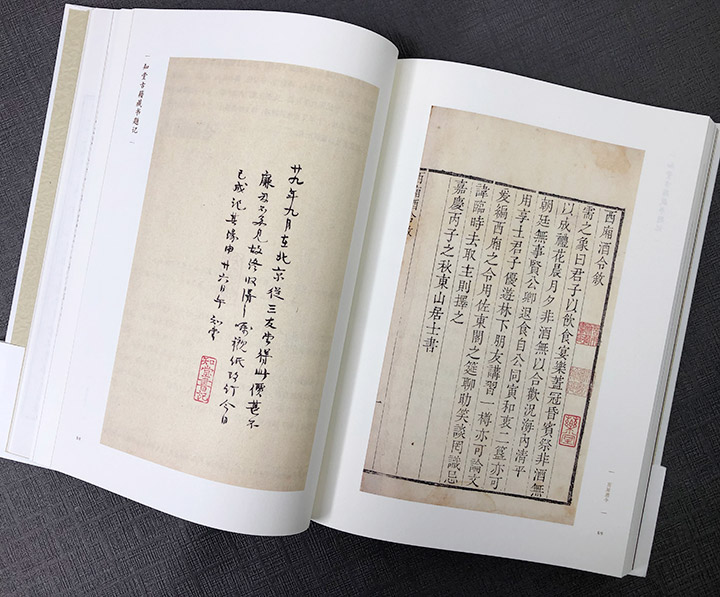 知堂古籍藏书题记
廿九年九月在北京從三友堂得此價甚不
廉因不多見故終收得之嘱襯紙改訂今日
已成記其緣由廿六日午知堂
知堂書記
西廂酒令敘
需之象曰君子以飲食宴樂蓋冠昏賓祭非酒無
以成禮花晨月夕非酒無以合歡況海內清平
朝廷無事賢公卿退食自公同寅和衷二簋亦可
用享士君子優遊林下朋友講習 樽亦可論文
爰編西廂之令用佐東閣之筵聊助笑談罔識忌
諱臨時去取主則擇之
嘉慶丙子之秋東山居士書
西廂酒令敘